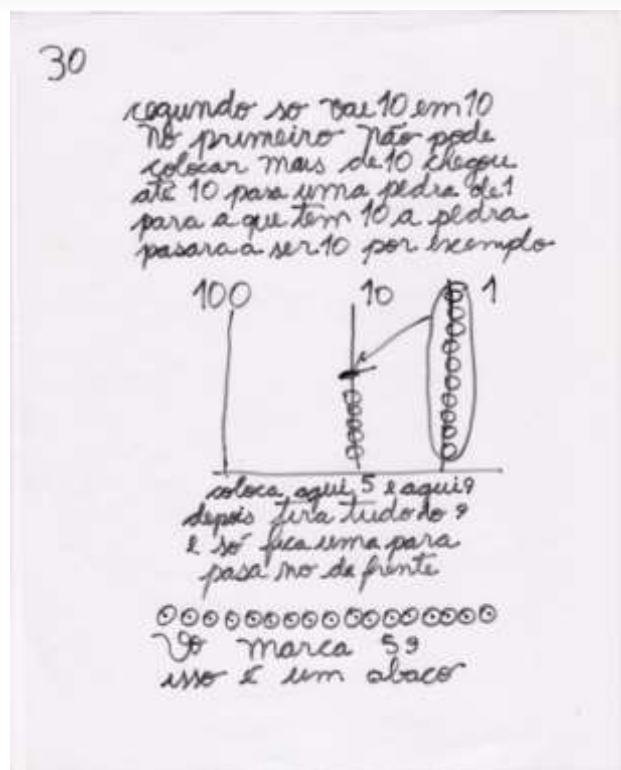 30
segundo so vae 10 em 10
no primeiro não pode
colocar mais de 10 chegou
até 10 pasa uma pedra de 1
para a que tem 10 a pedra
pasara a ser 10 por exemplo
100 10 1
coloca aqui 5 e aqui 9
depois tira tudo do 9
e só fica uma para
pasa no da frente
marca 59
isso é um abaco